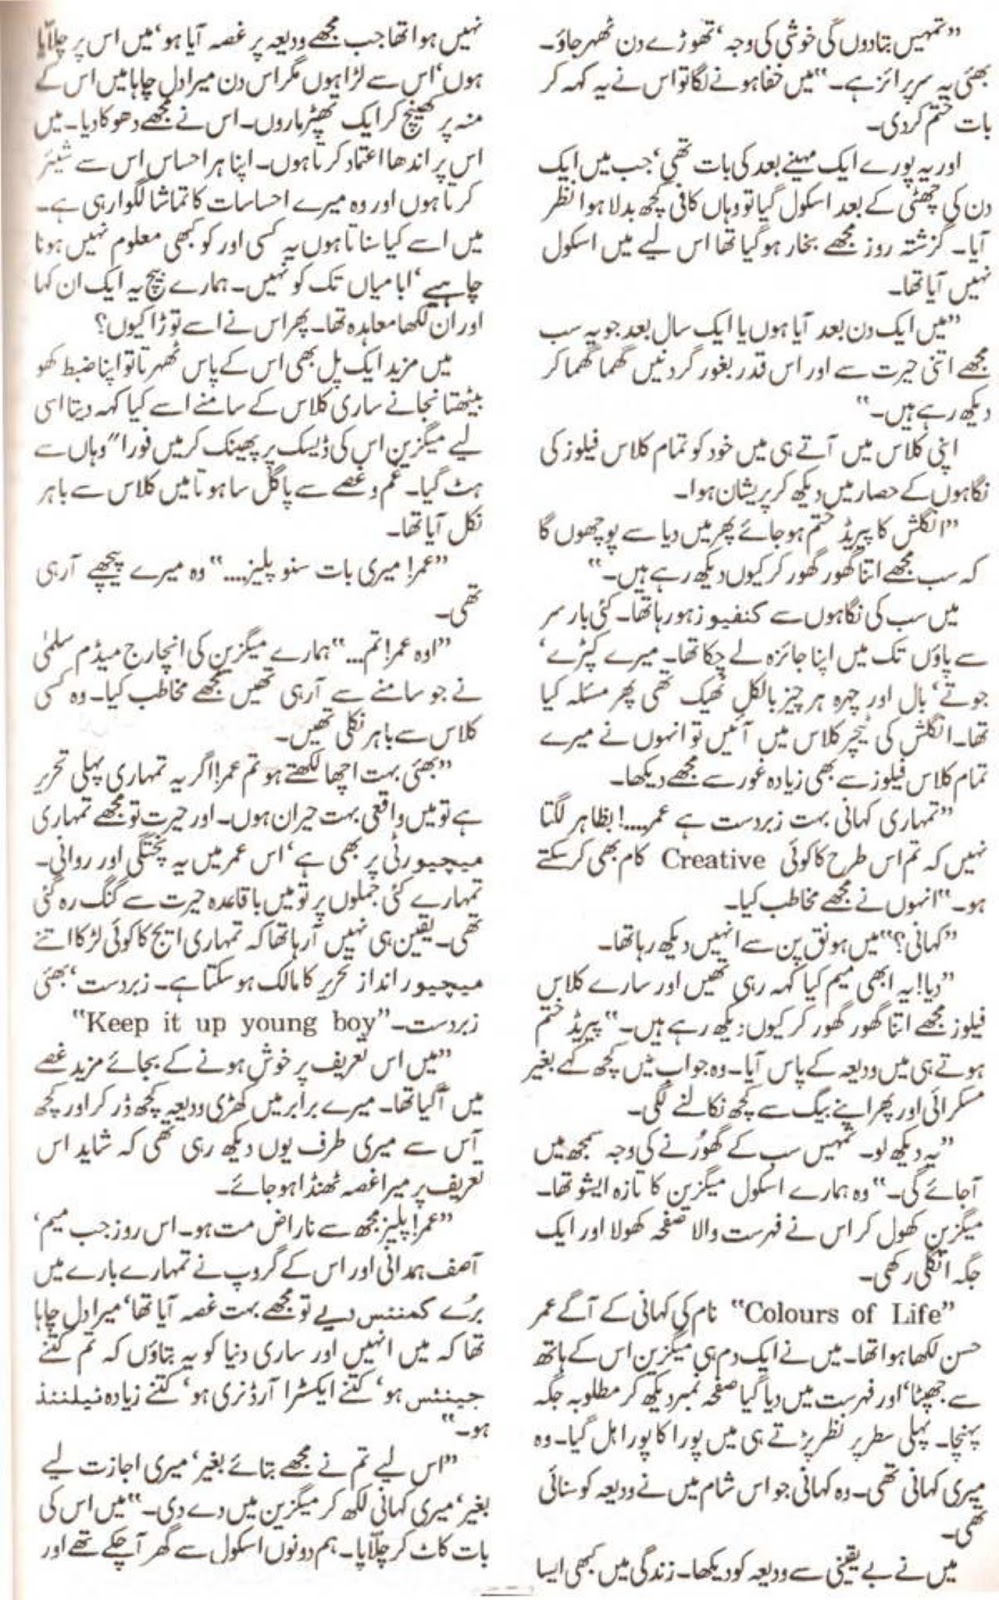 ”تمہیں بتادوں گی خوشی کی وجہ‘ تھوڑے دن ٹھہر جاؤ۔
بھئی یہ سرپرائز ہے۔“ میں خفا ہونے لگا تو اس نے یہ کہہ کر
بات ختم کردی۔
اور یہ پورے ایک مہینے بعد کی بات تھی‘ جب میں ایک
دن کی چھٹی کے بعد اسکول گیا تو وہاں کافی کچھ بدلا ہوا نظر
آیا۔ گزشتہ روز مجھے بخار ہوگیا تھا اس لیے میں اسکول
نہیں آیا تھا۔
”میں ایک دن بعد آیا ہوں یا ایک سال بعد جو یہ سب
مجھے اتنی حیرت سے اور اس قدر بغور گردنیں گھما گھما کر
دیکھ رہے ہیں۔“
اپنی کلاس میں آتے ہی میں خود کو تمام کلاس فیلوز کی
نگاہوں کے حصار میں دیکھ کر پریشان ہوا۔
”انگلش کا پیریڈ ختم ہوجائے پھر میں دیا سے پوچھوں گا
کہ سب مجھے اتنا گھور گھور کر کیوں دیکھ رہے ہیں۔“
میں سب کی نگاہوں سے کنفیوز ہورہا تھا۔ کئی بار سر
سے پاؤں تک میں اپنا جائزہ لے چکا تھا۔ میرے کپڑے‘
جوتے‘ بال اور چہرہ ہر چیز بالکل ٹھیک تھی پھر مسئلہ کیا
تھا۔ انگلش کی ٹیچر کلاس میں آئیں تو انہوں نے میرے
تمام کلاس فیلوز سے بھی زیادہ غور سے مجھے دیکھا۔
”تمہاری کہانی بہت زبردست ہے عمر....! بظاہر لگتا
نہیں کہ تم اس طرح کا کوئی Creative کام بھی کرسکتے
ہو۔“ انہوں نے مجھے مخاطب کیا۔
”کہانی؟“ میں ہونق پن سے انہیں دیکھ رہا تھا۔
”دیا! یہ ابھی میم کیا کہہ رہی تھیں اور سارے کلاس
فیلوز مجھے اتنا گھور گھور کر کیوں دیکھ رہے ہیں۔“ پیریڈ ختم
ہوتے ہی میں ودیعہ کے پاس آیا۔ وہ جواب میں کچھ کہے بغیر
مسکرائی اور پھر اپنے بیگ سے کچھ نکالنے لگی۔
”یہ دیکھ لو۔ تمہیں سب کے گھورنے کی وجہ سمجھ میں
آجائے گی۔“ وہ ہمارے اسکول میگزین کا تازہ ایشو تھا۔
میگزین کھول کر اس نے فہرست والا صفحہ کھولا اور ایک
جگہ انگلی رکھی۔
”Colours of Life“ نام کی کہانی کے آگے عمر
حسن لکھا ہوا تھا۔ میں نے ایک دم ہی میگزین اس کے ہاتھ
سے جھپٹا‘ اور فہرست میں دیا گیا صفحہ نمبر دیکھ کر مطلوبہ جگہ
پہنچا۔ پہلی سطر پر نظر پڑتے ہی میں پورا کا پورا ہل گیا۔ وہ
میری کہانی تھی۔ وہ کہانی جو اس شام میں نے ودیعہ کو سنائی
تھی۔
میں نے بے یقینی سے ودیعہ کو دیکھا۔ زندگی میں کبھی ایسا
نہیں ہوا تھا جب مجھے ودیعہ پر غصہ آیا ہو‘ میں اس پر چلّایا
ہوں‘ اس سے لڑا ہوں مگر اس دن میرا دل چاہا میں اس کے
منہ پر کھینچ کر ایک تھپڑ ماروں۔ اس نے مجھے دھوکا دیا۔ میں
اس پر اندھا اعتماد کرتا ہوں۔ اپنا ہر احساس اس سے شیئر
کرتا ہوں اور وہ میرے احساسات کا تماشا لگوا رہی ہے۔
میں اسے کیا سناتا ہوں یہ کسی اور کو کبھی معلوم نہیں ہونا
چاہیے‘ ابا میاں تک کو نہیں۔ ہمارے بیچ یہ ایک ان کہا
اور ان لکھا معاہدہ تھا۔ پھر اس نے اسے توڑا کیوں؟
میں مزید ایک پل بھی اس کے پاس ٹھہرتا تو اپنا ضبط کھو
بیٹھتا نجانے ساری کلاس کے سامنے اسے کیا کہہ دیتا اسی
لیے میگزین اس کی ڈیسک پر پھینک کر میں فورا″ وہاں سے
ہٹ گیا۔ غم وغصے سے پاگل سا ہوتا میں کلاس سے باہر
نکل آیا تھا۔
”عمر! میری بات سنو پلیز....“ وہ میرے پیچھے آرہی
تھی۔
”اوہ عمر! تم...“ ہمارے میگزین کی انچارج میڈم سلمیٰ
نے جو سامنے سے آرہی تھیں مجھے مخاطب کیا۔ وہ کسی
کلاس سے باہر نکلی تھیں۔
”بھئی بہت اچھا لکھتے ہو تم عمر! اگر یہ تمہاری پہلی تحریر
ہے تو میں واقعی بہت حیران ہوں۔ اور حیرت تو مجھے تمہاری
میچیورٹی پر بھی ہے‘ اس عمر میں یہ پختگی اور روانی۔
تمہارے کئی جملوں پر تو میں باقاعدہ حیرت سے گنگ رہ گئی
تھی۔ یقین ہی نہیں آرہا تھا کہ تمہاری ایج کا کوئی لڑکا اتنے
میچیور انداز تحریر کا مالک ہوسکتا ہے۔ زبردست‘ بھئی
زبردست۔ ”Keep it up young boy“
”میں اس تعریف پر خوش ہونے کے بجائے مزید غصے
میں آگیا تھا۔ میرے برابر میں کھڑی ودیعہ کچھ ڈر کر اور کچھ
آس سے میری طرف یوں دیکھ رہی تھی کہ شاید اس
تعریف پر میرا غصہ ٹھنڈا ہوجائے۔
”عمر! پلیز مجھ سے ناراض مت ہو۔ اس روز جب میم‘
آصف ہمدانی اور اس کے گروپ نے تمہارے بارے میں
برے کمنٹس دیے تو مجھے بہت غصہ آیا تھا‘ میرا دل چاہا
تھا کہ میں انہیں اور ساری دنیا کو یہ بتاؤں کہ تم کتنے
جینئس ہو‘ کتنے ایکسٹرا آرڈنری ہو‘ کتنے زیادہ ٹیلنٹڈ
ہو۔“
”اس لیے تم نے مجھے بتائے بغیر‘ میری اجازت لیے
بغیر‘ میری کہانی لکھ کر میگزین میں دے دی۔“ میں اس کی
بات کاٹ کر چلّایا۔ ہم دونوں اسکول سے گھر آچکے تھے اور